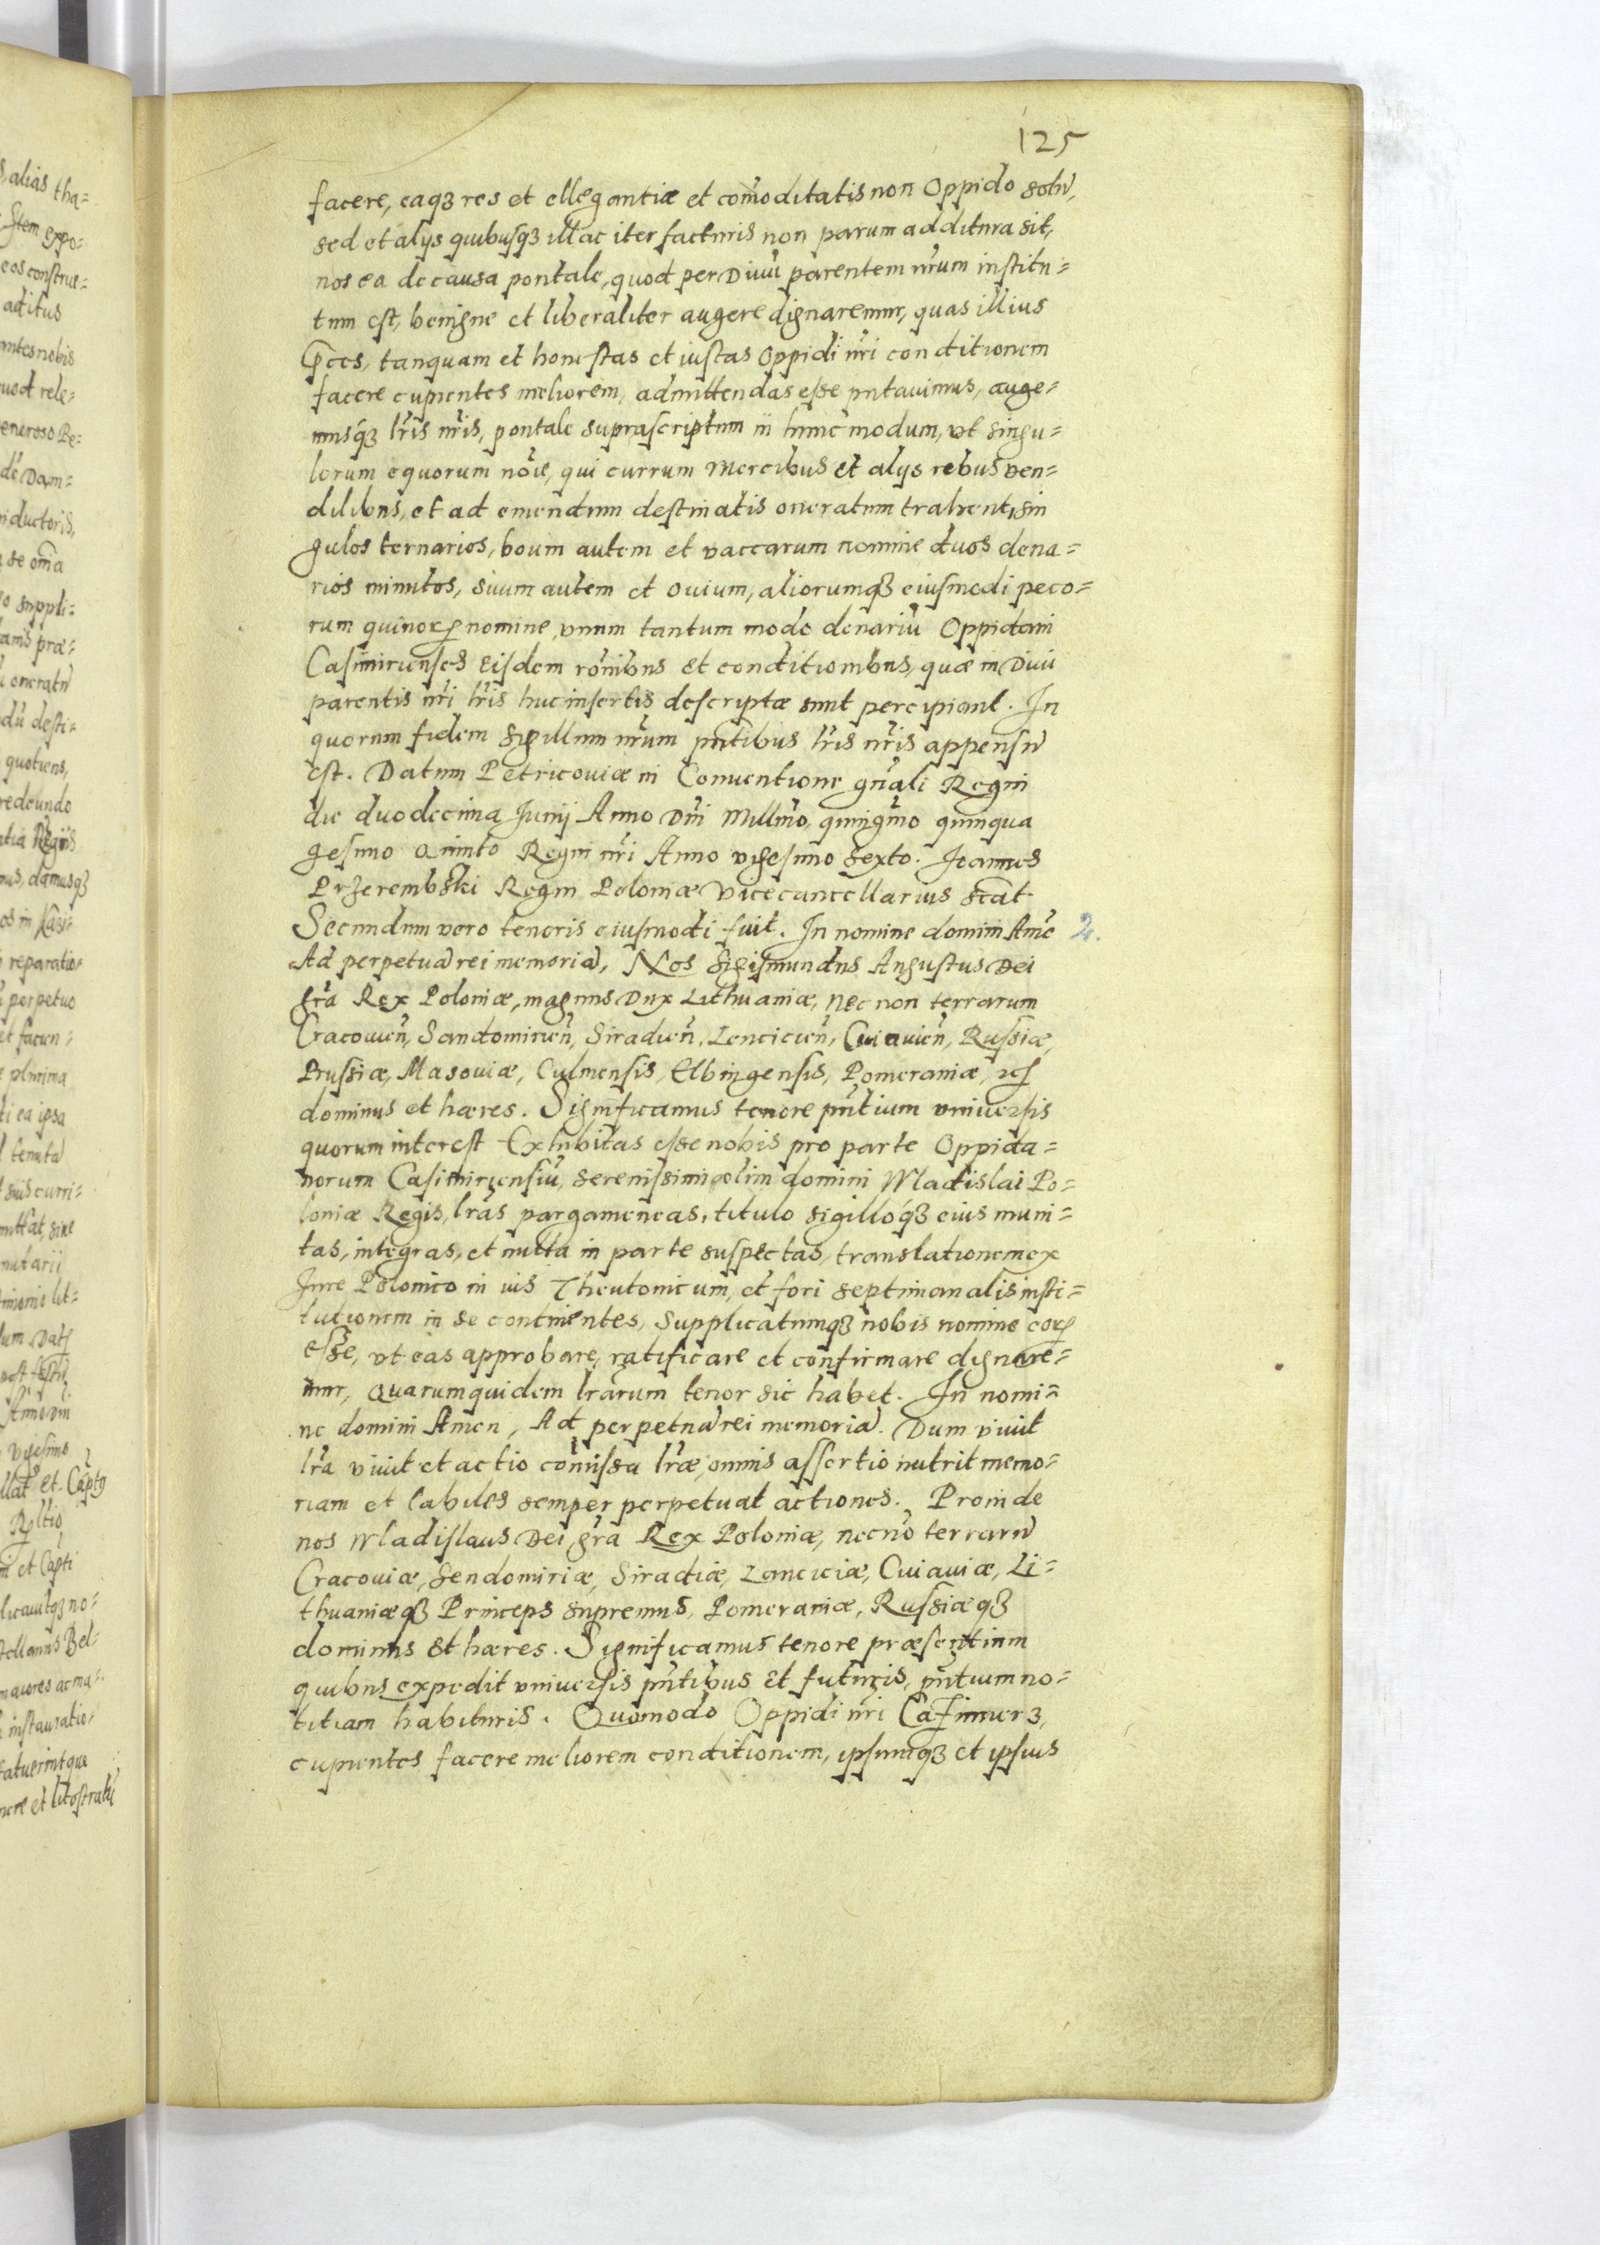 125
facere, eaq₃ res et ellegantiæ et com̃oditatis non Oppido solũ,
sed et alys quibusq₃ illac iter facturis non parum additura sit,
nos ea de causa pontale, quod per Divũ parentem nr̃um institu=
tum est, benigne et liberaliter augere dignaremur, quas illius
p̃ces, tanquam et honestas et iustas Oppidi nr̃i conditionem
facere cupientes meliorem, admittendas esse putavimus, auge=
musq₃ lr̃is nr̃is, pontale suprascriptum in hunc modum, vt singu=
lorum equorum noĩe, qui currum mercibus et alys rebus ven=
dilibus, et ad emendum destinatis oneratum trahent, sin
gulos ternarios, boum autem et vaccarum nomine duos dena=
rios minutos, suum autem et ovium, aliorumq₃ eiusmodi peco=
rum quinorꝝ nomine, vnum tantum modo denariũ Oppidani
Casimirienses eisdem rõnibus et conditionibus, quæ in Divi
parentis nr̃i lr̃is huc insertis descriptæ sunt percipiant. In
quorum fidem sigillum nr̃um pñtibus lr̃is nr̃is appensũ
est. Datum Petricoviæ in Conventione gñali Regni
die duodecima Junij Anno Dñi Millm̃o, quingm̃o quinqua
gesimo Quinto Regni nr̃i Anno vigesimo sexto. Joannes
Przerembski Regni Poloniæ Vicecancellarius sc̃at
Secundum vero tenoris eiusmodi fuit. In nomine domini Amẽ 2.
Ad perpetuã rei memoriã, Nos Sigismundus Augustus Dei
gr̃a Rex Poloniæ, magnus Dux Lithuaniæ, Nec non terrarum
Cracovieñ, Sandomirieñ, Siradieñ, Lencicieñ, Cuiavieñ, Russiæ,
Prussiæ, Masoviæ, Culmensis, Elbingensis, Pomeraniæ, ꝛc̃
dominus et hæres. Significamus tenore pñtium vniversis
quorum interest Exhibitas esse nobis pro parte Oppida=
norum Casimiriensiũ, serenissimi olim domini Wladislai Po=
loniæ Regis, lr̃as pargameneas, titulo sigilloq₃ eius muni=
tas, integras, et nulla in parte suspectas, translationem ex
Jure Polonico in ius Theutonicum, et fori septimanalis insti=
tutionem in se continentes, Supplicatumq₃ nobis nomine eorꝝ
esse, vt eas approbare, ratificare et confirmare dignare=
mur, Quarum quidem lr̃arum tenor sic habet. In nomi=
ne domini Amen, Ad perpetuã rei memoriã. Dum vivit
lr̃a vivit et actio com̃issa lr̃æ, omnis assertio nutrit memo=
riam et labiles semper perpetuat actiones. Proinde
nos Wladislaus Dei gr̃a Rex Poloniæ, necnõ terrarũ
Cracoviæ, Sendomiriæ, Siradiæ, Lanciciæ, Cuiaviæ, Li=
thuaniæq₃ Princeps supremus, Pomeraniæ, Russiæq₃
dominus et hæres. Significamus tenore præsentium
quibus expedit vniversis pñtibus et futuris, pñtium no=
titiam habituris. Quomodo Oppidi nr̃i Casimierz,
cupientes facere meliorem conditionem, ipsumq₃ et ipsius